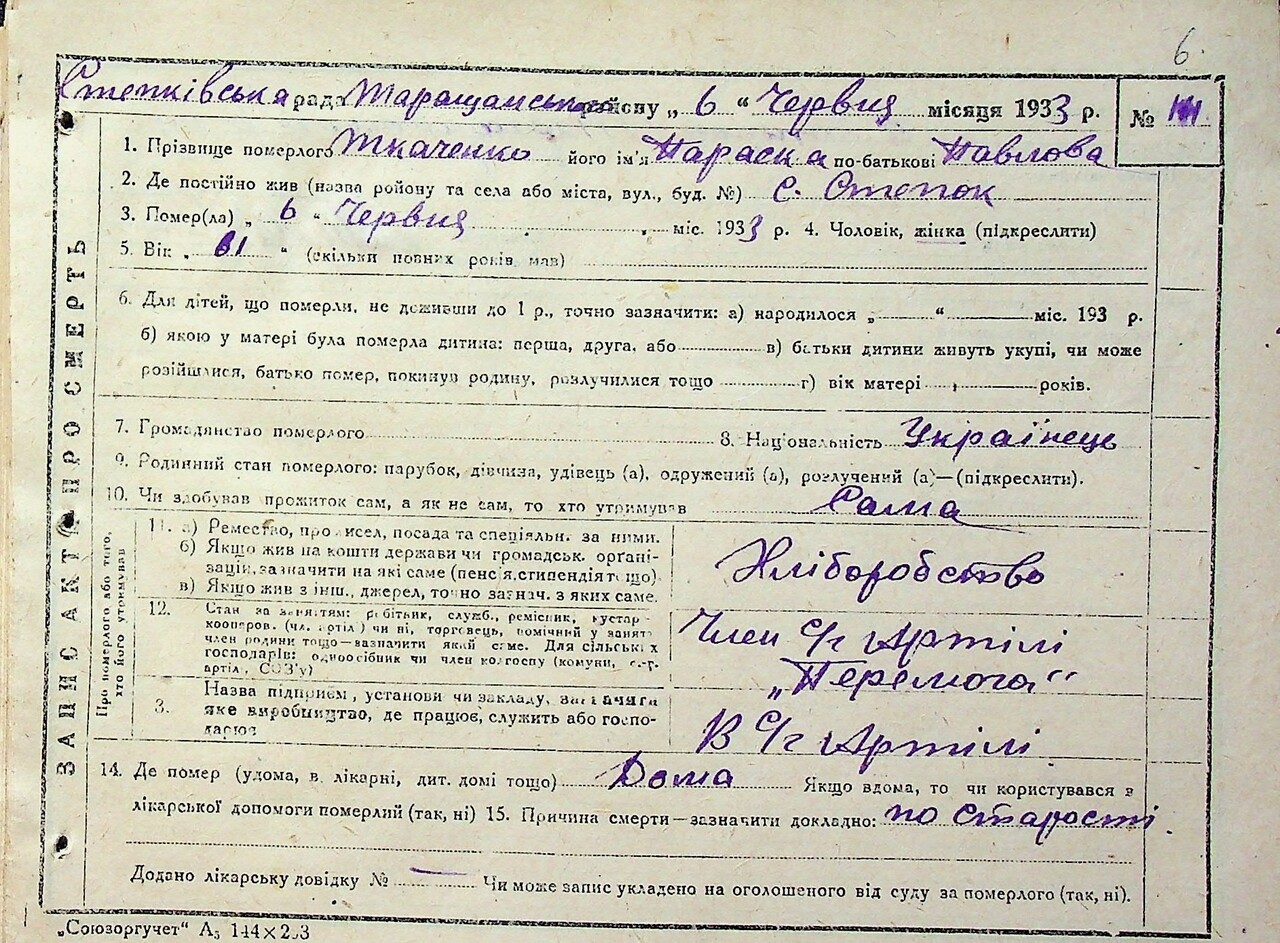 6.
Степківська рада Таращанського району „ 6 “ Червня місяця 1933 р.
№
1. Прізвище померлого Ткаченко його ім'я Параска по-батькові Павлова
2. Де постійно жив (назва району та села або міста, вул., буд. №) с. Степок
3. Помер(ла) „ 6 “ Червня міс. 1933 р. 4. Чоловік, жінка (підкреслити)
5. Вік „ 61 “ (скільки повних років мав)
6. Для дітей, що померли, не доживши до 1 р., точно зазначити: а) народилося „ “ міс. 193 р.
б) якою у матері була померла дитина: перша, друга, або в) батьки дитини живуть укупі, чи може
розійшлися, батько помер, покинув родину, розлучилися тощо г) вік матері років.
7. Громадянство померлого 8. Національність Українець
9. Родинний стан померлого: парубок, дівчина, удівець (а), одружений (а), розлучений (а)—(підкреслити).
10. Чи здобував прожиток сам, а як не сам, то хто утримував Сама
11. а) Ремество, промисел, посада та спеціяльн. за ними.
б) Якщо жив на кошти держави чи громадськ. орґані-
зацій, зазначити на які саме (пенсія, стипендія тощо)
в) Якщо жив з інш., джерел, точно зазнач. з яких саме.
Хліборобство
12. Стан за заняттям: робітник, служб., ремісник, кустар-
кооперов. (чл. артіл.) чи ні, торговець, помічний у занят.
член родини тощо—зазначити який саме. Для сільських
господарів: одноосібник чи член колгоспу (комуни, с.-г.
артіл., СОЗ'у)
Член С/г Артілі
„Перемога“
3. Назва підприєм., установи чи закладу, зазначити
яке виробництво, де працює, служить або госпо-
дарює
В С/г Артілі
14. Де помер (удома, в лікарні, дит. домі тощо) Дома Якщо вдома, то чи користувався з
лікарської допомоги померлий (так, ні) 15. Причина смерти—зазначити докладно: по старості.
Додано лікарську довідку № Чи може запис укладено на оголошеного від суду за померлого (так, ні).
„Союзоргучет“ А5 144×203
ЗАПИС АКТА ПРО СМЕРТЬ
Про померлого або того,
хто його утримував